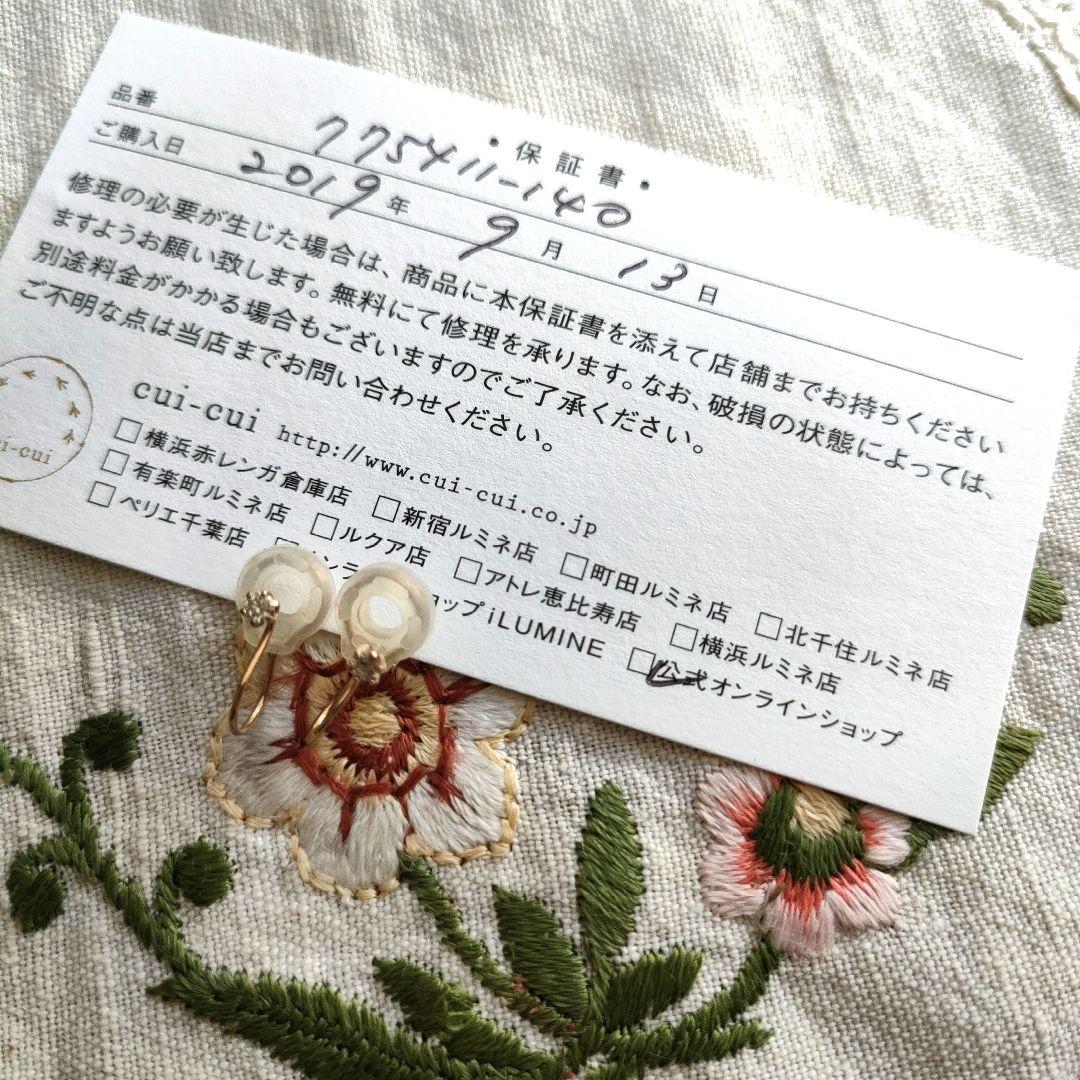 ・保証書・
品番 775411-140
ご購入日 2019年 9月 13日
修理の必要が生じた場合は、商品に本保証書を添えて店舗までお持ちください
ますようお願い致します。無料にて修理を承ります。なお、破損の状態によっては、
別途料金がかかる場合もございますのでご了承ください。
ご不明な点は当店までお問い合わせください。
cui-cui http://www.cui-cui.co.jp
□横浜赤レンガ倉庫店 □新宿ルミネ店 □町田ルミネ店 □北千住ルミネ店
□有楽町ルミネ店 □ルクア店 □アトレ恵比寿店 □横浜ルミネ店
□ペリエ千葉店 ップiLUMINE □公式オンラインショップ
ui-cui